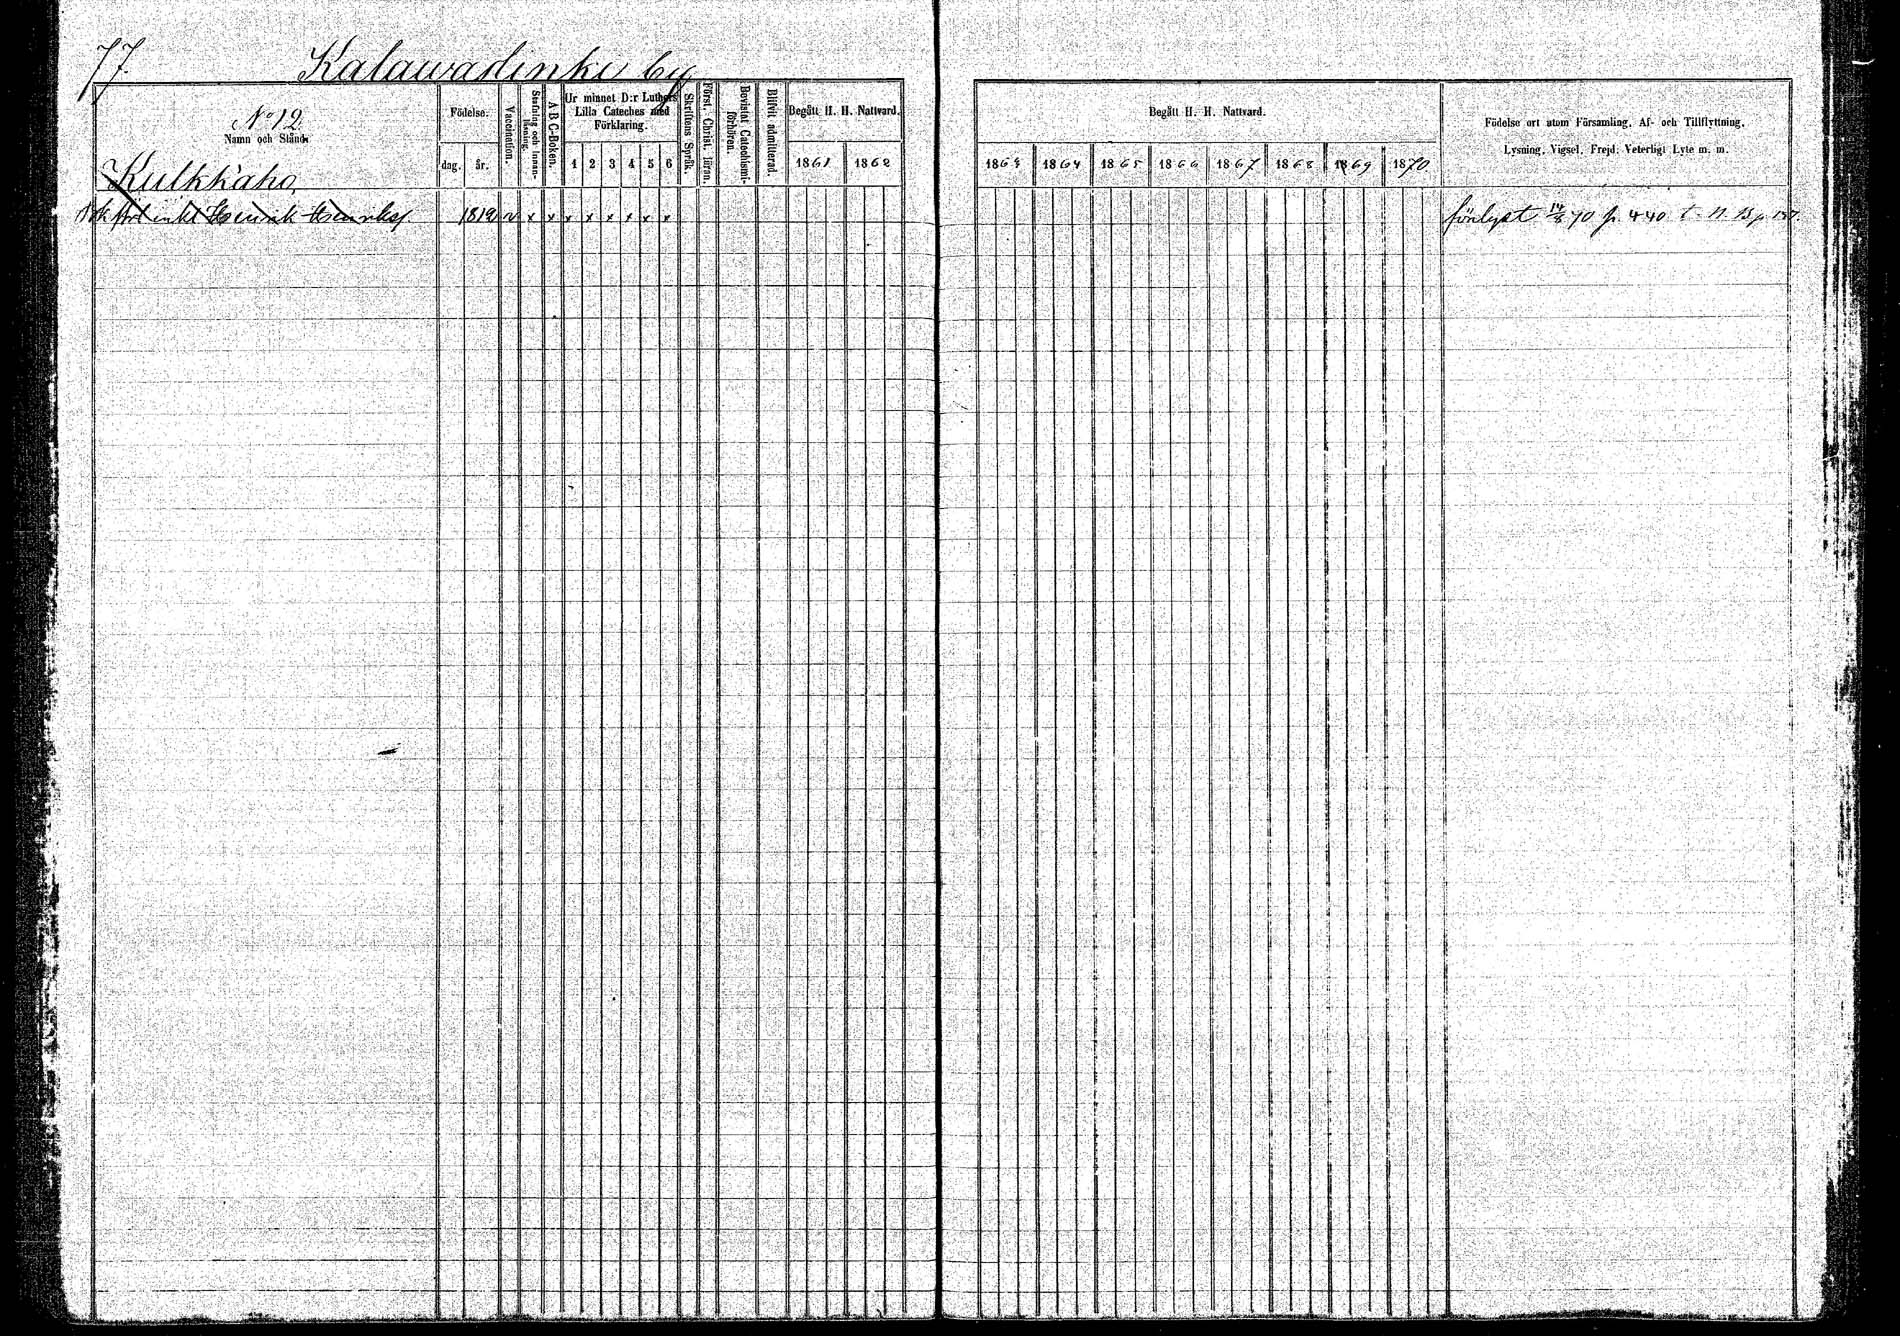 77.
Kalawadenki by
No 12.
Namn och Stånd.
Födelse.
dag.
år.
Vaccination.
Stafning och Innanläsning.
A B C-Boken.
Ur minnet D:r Luthers Lilla Cateches med Förklaring.
1 2 3 4 5 6
Skriftens Språk.
Först. Christ. läran.
Bevistat Catechismiförhören.
Blifvit admitterad.
Begått H. H. Nattvard.
1861 1862
Begått H. H. Nattvard.
1863 1864 1865 1866 1867 1868 1869 1870
Födelse ort utom Församling, Af- och Tillflyttning,
Lysning, Vigsel, Frejd, Veterligt Lyte m. m.
Kulkkaho,
enkl Henrik Henrikss. 1812 v x x x x x x x x
14/8 70 p. 440 t. N. 13 p 157.